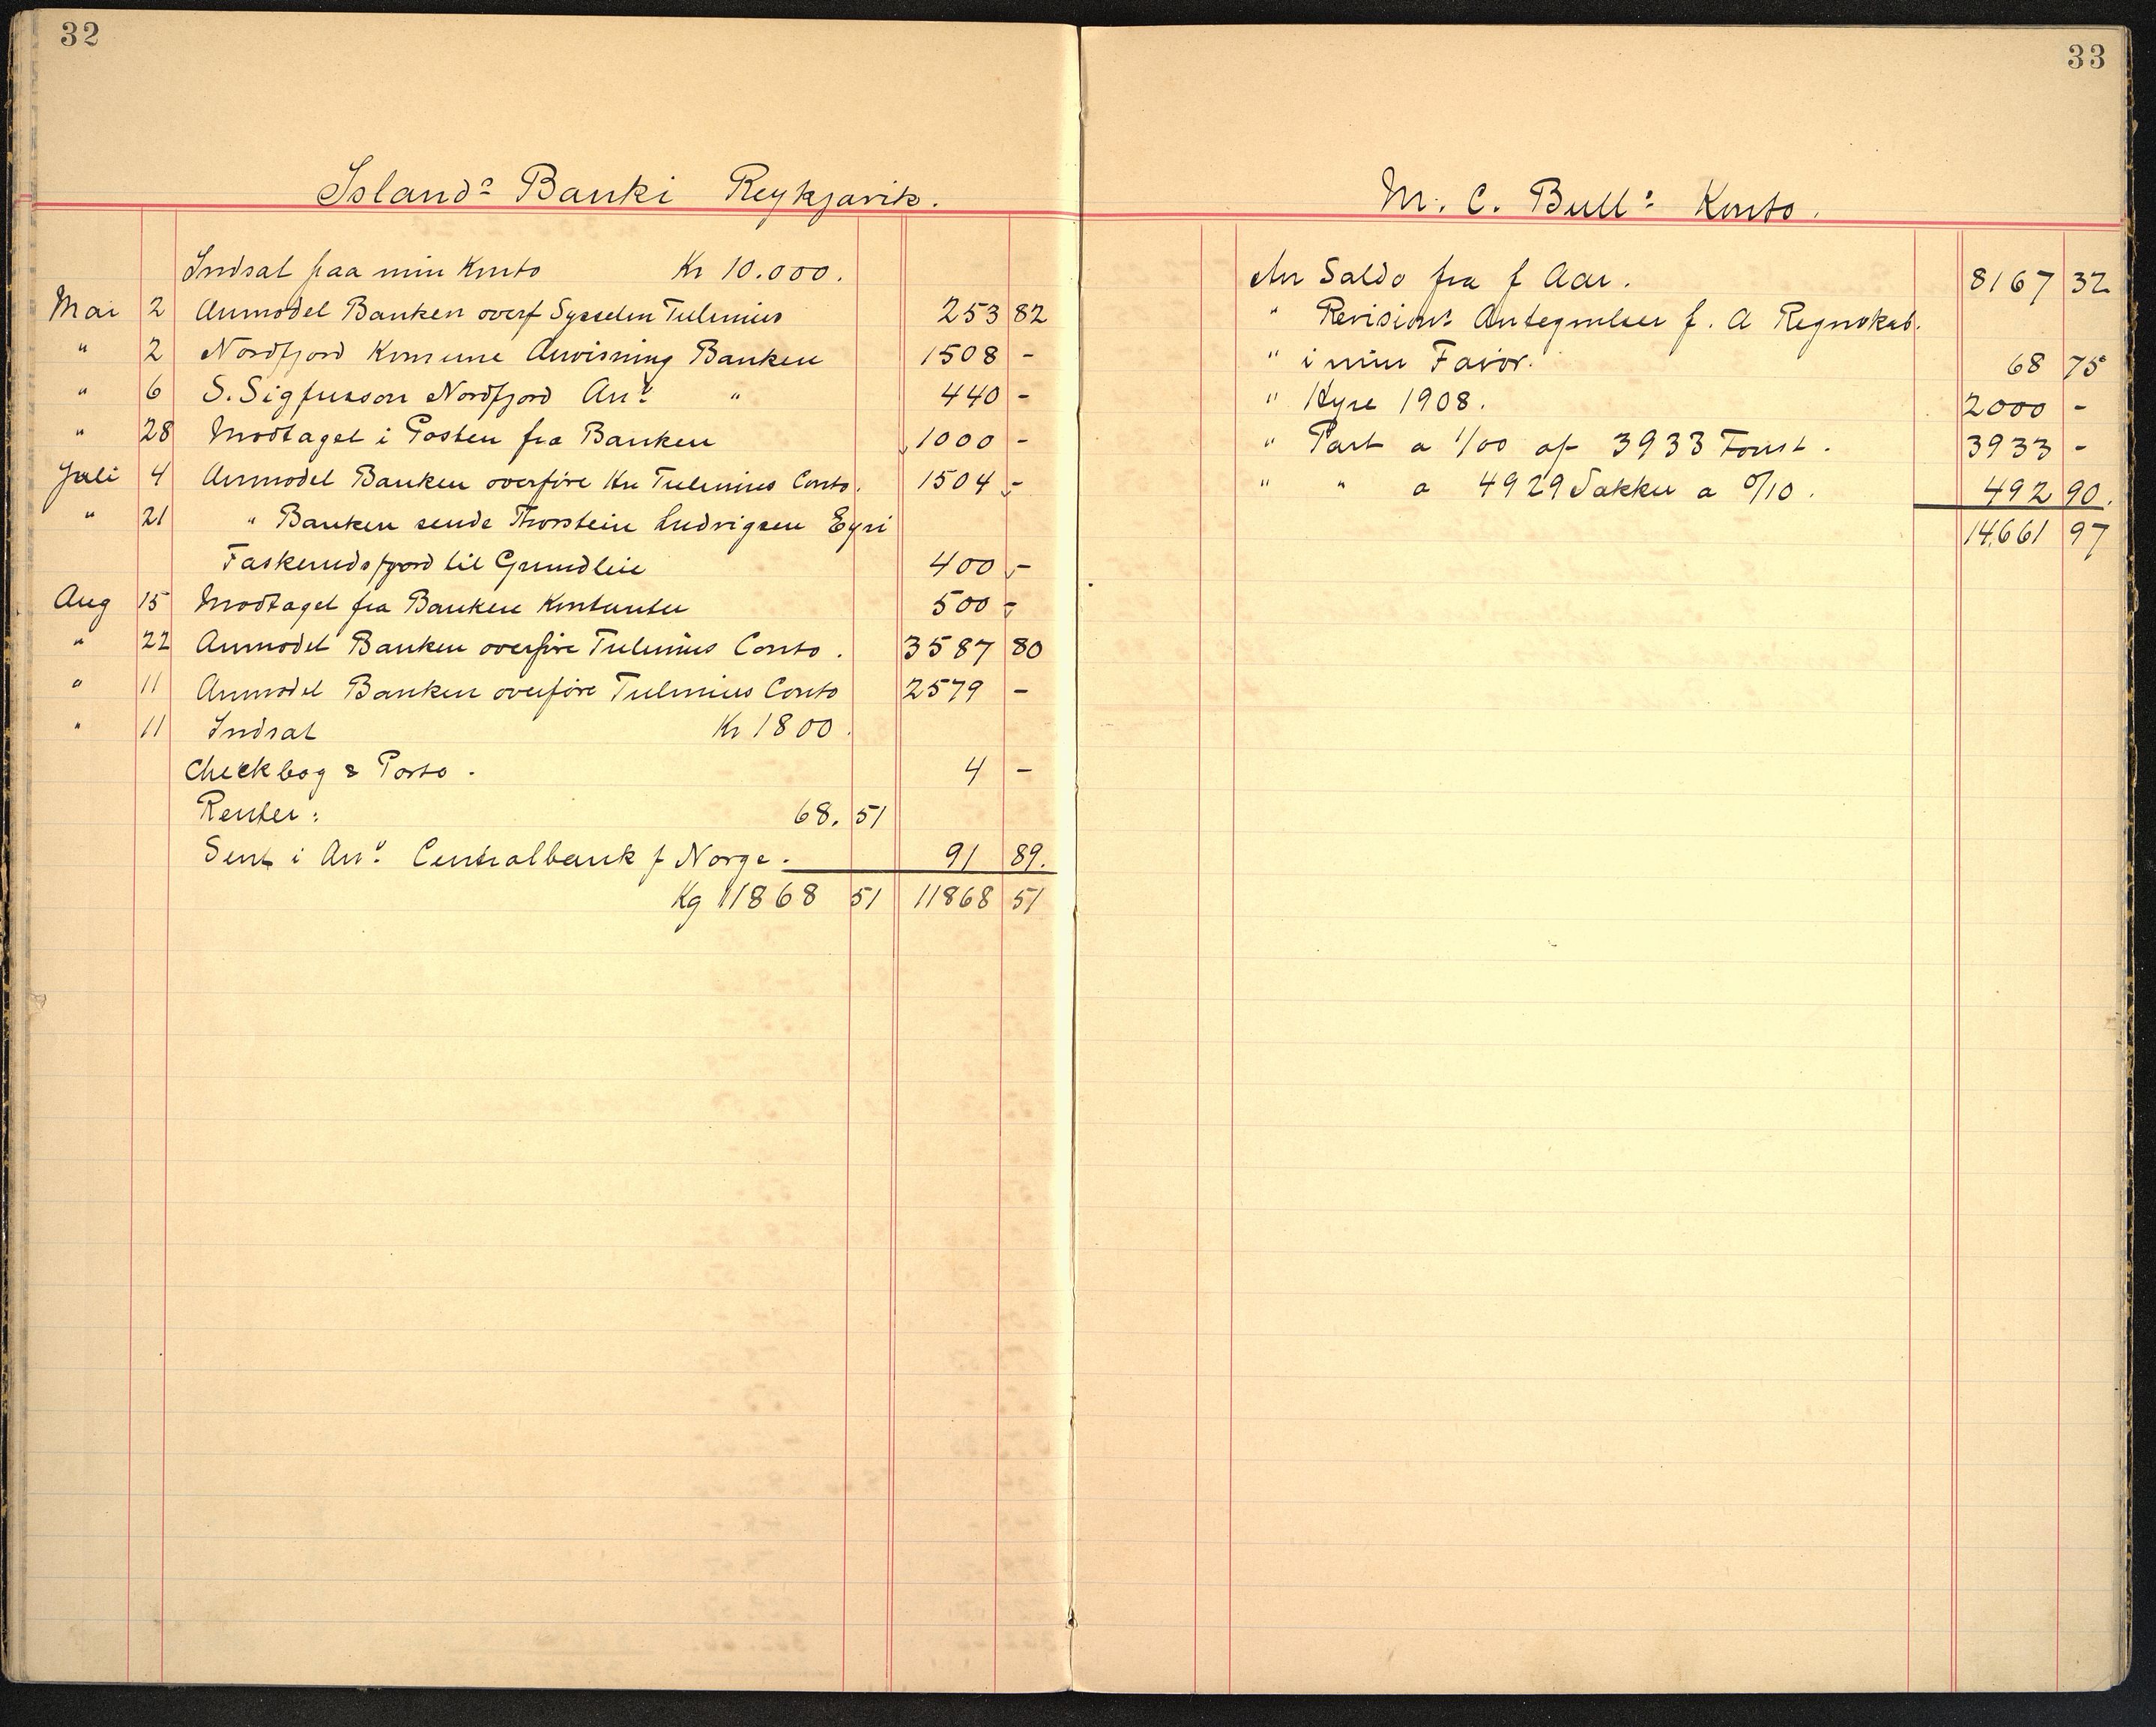 32
Islands Banki Reykjavik.
Indsat paa min Konto Kr 10.000.
Mai 2 Anmodet Banken overf Sysselm Tulinius 253 82
" 2 Nordfjord Komune Anvisning Banken 1508 -
" 6 S. Sigfusson Nordfjord Anv " 440 -
" 28 Modtaget i Posten fra Banken 1000 -
Juli 4 Anmodet Banken overføre Kr Tulinius Conto. 1504 -
" 21 " Banken sende Thorstein Ludvigsen Eyri
Faskrudsfjord til Grundleie 400 -
Aug 15 Modtaget fra Banken Kontanter 500 -
" 22 Anmodet Banken overføre Tulinius Conto. 3587 80
" 11 Anmodet Banken overføre Tulinius Conto 2579 -
" 11 Indsat Kr 1800.
Checkbog & Porto. 4 -
Renter: 68. 51
Sent i Anv. Centralbank f Norge. 91 89.
Kg 11868 51 11868 51
33
M. C. Bulls Konto.
An Saldo fra f Aar. 8167 32
" Revisions Antegnelser f. A Regnskab.
" i min Favør. 68 75
" Hyre 1908. 2000 -
" Part a 1/00 af 3933 Tønst. 3933 -
" " a 4929 Sækker a 0/10. 492 90.
14.661 97